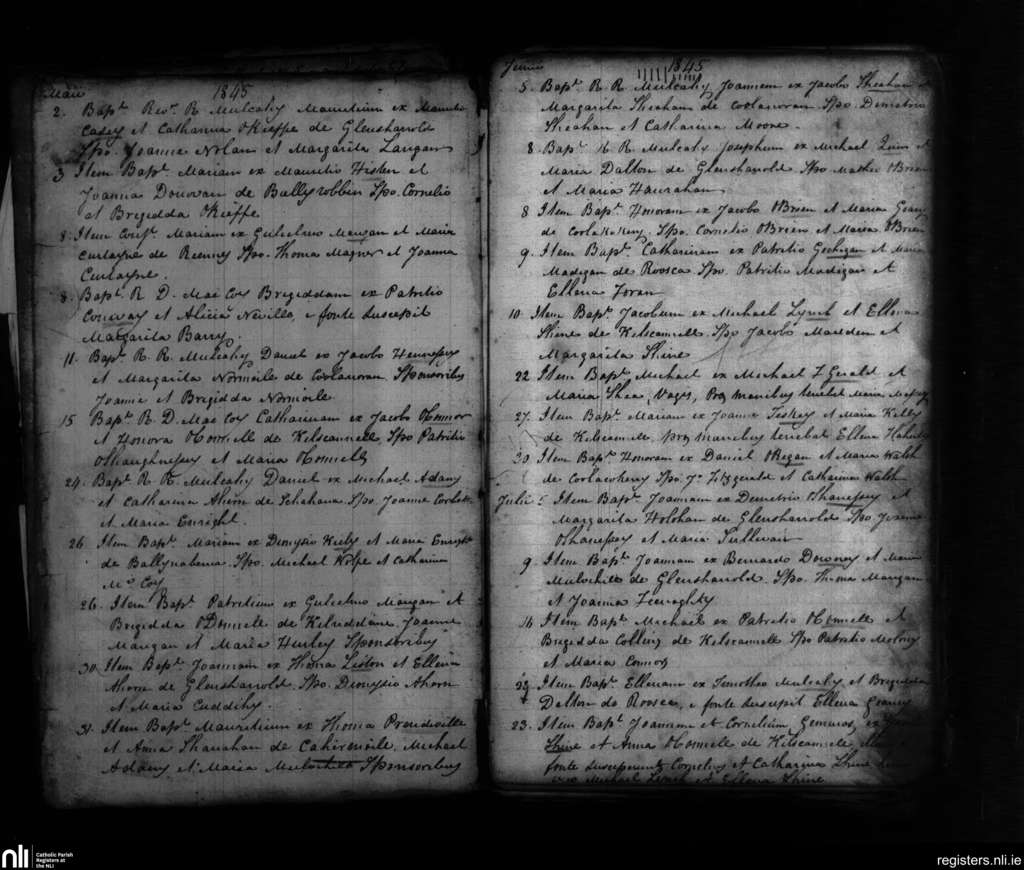 Maii 1845
2. Bapt. Rev. R Mulcahy Mauritium ex Mauritio
Casey et Catharina OKieffe de Glensharrold
Spo. Joanne Nolan et Margarita Langan
3 Item Bapt. Mariam ex Mauritio Histen et
Joanna Donovan de Ballyrobbin Spo. Cornelio
et Brigidda OKieffe
8. Item Mariam ex Gulielmo Mangan et Maria
Curtayne de Reeney Spo. Thoma Magner et Joanna
Curtayne.
8. Bapt. R D. Mac Coy Brigiddam ex Patritio
Conway et Alicia Neville, e fonte suscepit
Margarita Barry.
11. Bapt. R. R. Mulcahy Daniel ex Jacobo Hennessy
et Margarita Normoile de Coolanoran. Sponsoribus
Joanne et Brigidda Normoile
15 Bapt. R D. Mac Coy Catharinam ex Jacobo OConnor
et Honora OConnell de Kilscannell Spo Patritio
OShaughnessy et Maria OConnell
24. Bapt. R. R. Mulcahy Daniel ex Michael Adams
et Catharina Ahern de Spo. Joanne
et Maria Enright.
26 Item Bapt. Mariam ex Dionysio Kirby et Maria Enright
de Ballynabearna Spo. Michael Kolpe et Catharina
Mc Coy
26. Item Bapt. Patritium ex Gulielmo Mangan et
Brigidda ODonnell de Joanne
Mangan et Maria Hurley Sponsoribus
30. Item Bapt. Joannam ex Thoma Liston et Ellena
Ahern de Glensharrold Spo. Dionysio Ahern
et Maria Cuddihy.
31. Item Bapt. Mauritium ex Thoma Prendiville
et Anna Shanahan de Cahirmoile, Michael
Adams et Maria Sponsoribus
Junii 1845
5. Bapt. R. R. Mulcahy Joannem ex Jacobo Sheahan et
Margarita Sheahan de Coolanoran Spo. Demetrio
Sheahan et Catharina Moore.
8. Bapt. R. Mulcahy Josephum ex Michael Quin et
Maria Dalton de Glensharrold Spo Matheo OBrien
et Maria Hanrahan
8 Item Bapt. Honoram ex Jacobo OBrien et Maria
de Spo. Cornelio OBrien et Maria OBrien
9. Item Bapt. Catharinam ex Patritio Geehigan et Maria
Madigan de Roosca Spo. Patritio Madigan et
Ellena Foran
10. Item Bapt. Jacobum ex Michael Lynch et Ellena
Shine de Kilscannell Spo Jacobo et
Margarita Shine
22 Item Bapt. Michael ex Michael FGerald et
Maria Shea, Vagus, Pro manibus tenebat Maria
27. Item Bapt. Mariam ex Joanne Teskey et Maria Kelly
de Kilscannell, pro manibus tenebat Ellena
30 Item Bapt. Honoram ex Daniel ORegan et Maria Walsh
de Spo. Fitzgerald et Catharina Walsh
Julii 5 Item Bapt. Joannam ex Demetrio OShanessy et
Margarita Holohan de Glensharrold Spo. Joanne
OShanessy et Maria Sullivan
9. Item Bapt. Joannam ex Bernardo Downey et Maria
de Glensharrold. Spo. Thoma Mangan
et Joanna
16 Item Bapt. Michael ex Patritio OConnell et
Brigidda Collins de Kilscannell Spo Patritio Molony
et Maria Connors
Item Bapt. Ellenam ex Timotheo Mulcahy et Brigidda
Dalton de Roosca, e fonte suscepit Ellena
23. Item Bapt. Joannem et Cornelium Geminos, ex
Shine et Anna OConnell de Kilscannell,
fonte susceperunt Cornelius et Catharina Shine
Michael Lynch et Ellena Shine
nli Catholic Parish
Registers at
the NLI
registers.nli.ie